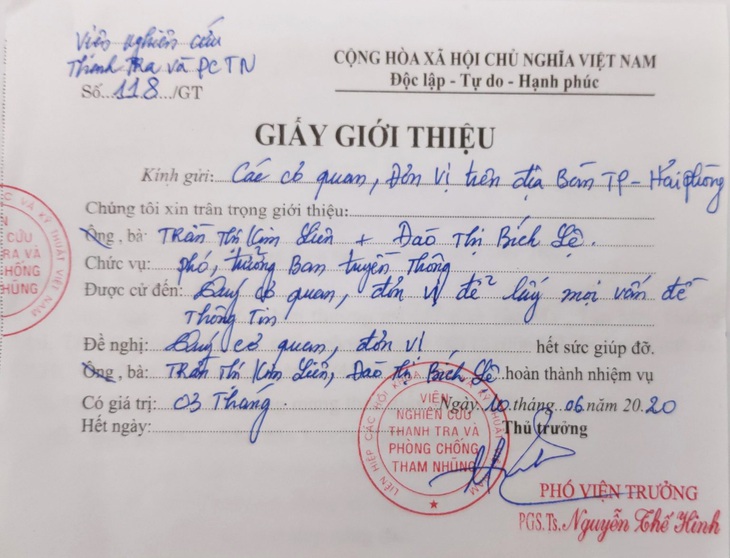 Viện nghiên cứu
Thanh tra và PCTN
Số...118.../GT
CỘNG HÒA XÃ HỘI CHỦ NGHĨA VIỆT NAM
Độc lập - Tự do - Hạnh phúc
GIẤY GIỚI THIỆU
Kính gửi: Các cơ quan, Đơn vị trên địa Bàn TP - Hải phòng
Chúng tôi xin trân trọng giới thiệu:
Ông, bà: Trần Thị Kim Liên + Đào Thị Bích Lệ.
Chức vụ: phó, trưởng Ban truyền Thông
Được cử đến: Quý cơ quan, đơn vị để lấy mọi vấn đề
Thông Tin
Đề nghị: Quý cơ quan, đơn vị hết sức giúp đỡ.
Ông, bà: Trần Thị Kim Liên, Đào Thị Bích Lệ hoàn thành nhiệm vụ
Có giá trị: 03 Tháng. Ngày 10 tháng 06 năm 2020
Hết ngày: Thủ trưởng
LIÊN HIỆP CÁC HỘI KHOA HỌC VÀ KỸ THUẬT VIỆT NAM
VIỆN
NGHIÊN CỨU
THANH TRA VÀ
PHÒNG CHỐNG
THAM NHŨNG
PHÓ VIỆN TRƯỞNG
PGS.Ts. Nguyễn Thế Hinh
CÁC VÀ KỸ THUẬT VIỆT NAM
CỨU
TRA VÀ
CHỐNG
NHŨNG